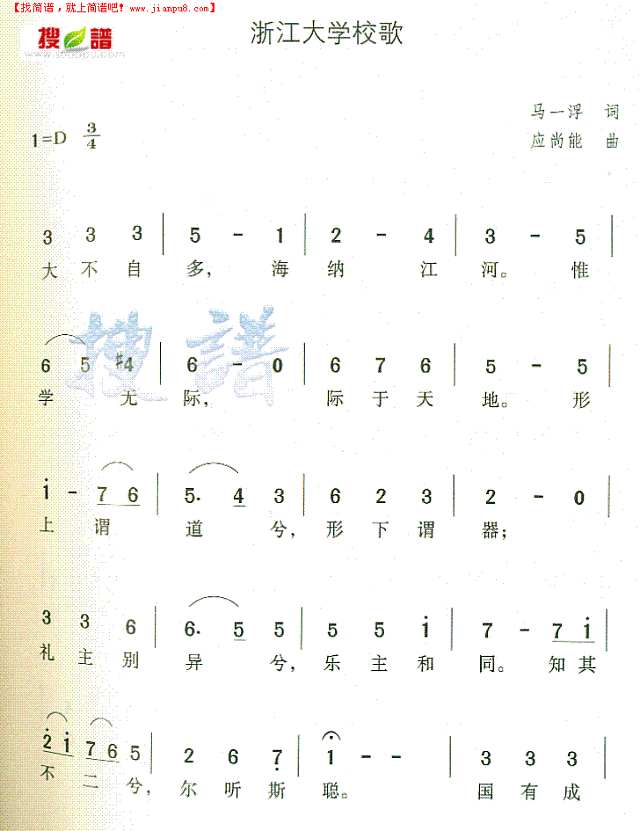 【找简谱，就上简谱吧! www.jianpu8.com】
搜谱
浙江大学校歌
马一浮 词
1=D 3/4
应尚能 曲
3 3 3 | 5 - 1 | 2 - 4 | 3 - 5 |
大不自多，海纳江河。惟
6 5 #4 | 6 - 0 | 6 7 6 | 5 - 5 |
学无际，际于天地。形
搜谱
i - 7 6 | 5. 4 3 | 6 2 3 | 2 - 0 |
上谓道兮，形下谓器；
3 3 6 | 6. 5 5 | 5 5 i | 7 - 7 i |
礼主别异兮，乐主和同。知其
2 i 7 6 5 | 2 6 7 | 1 - - | 3 3 3 |
不二兮，尔听斯聪。国有成